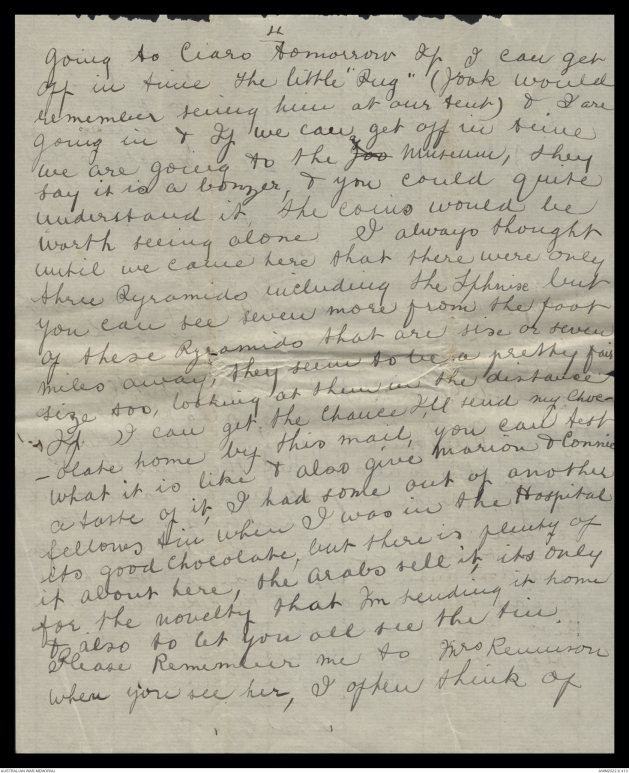 4
going to Ciaro tomorrow If I can get
off in time the little "Pug" (Jook would
remember seeing him at our tent) & I are
going in & If we can get off in time
we are going to the Zoo Museum, they
say it is a bonzer, & you could quite
understand it, the coins would be
worth seeing alone I always thought
until we came here that there were only
three Pyramids including the Sphnix but
you can see seven more from the foot
of these Pyramids that are six or seven
miles away, they seem to be a pretty fair
size too, looking at them in the distance
If I can get the chance I'll send my Choc-
-olate home by this mail, you can test
what it is like & also give Marion & Connie
a taste of it, I had some out of another
fellows tin when I was in the Hospital
its good Chocolate, but there is plenty of
it about here, the Arabs sell it, its only
for the novelty that I'm sending it home
& also to let you all see the tin.
Please Remember me to Mrs Rennison
when you see her, I often think of
AUSTRALIAN WAR MEMORIAL